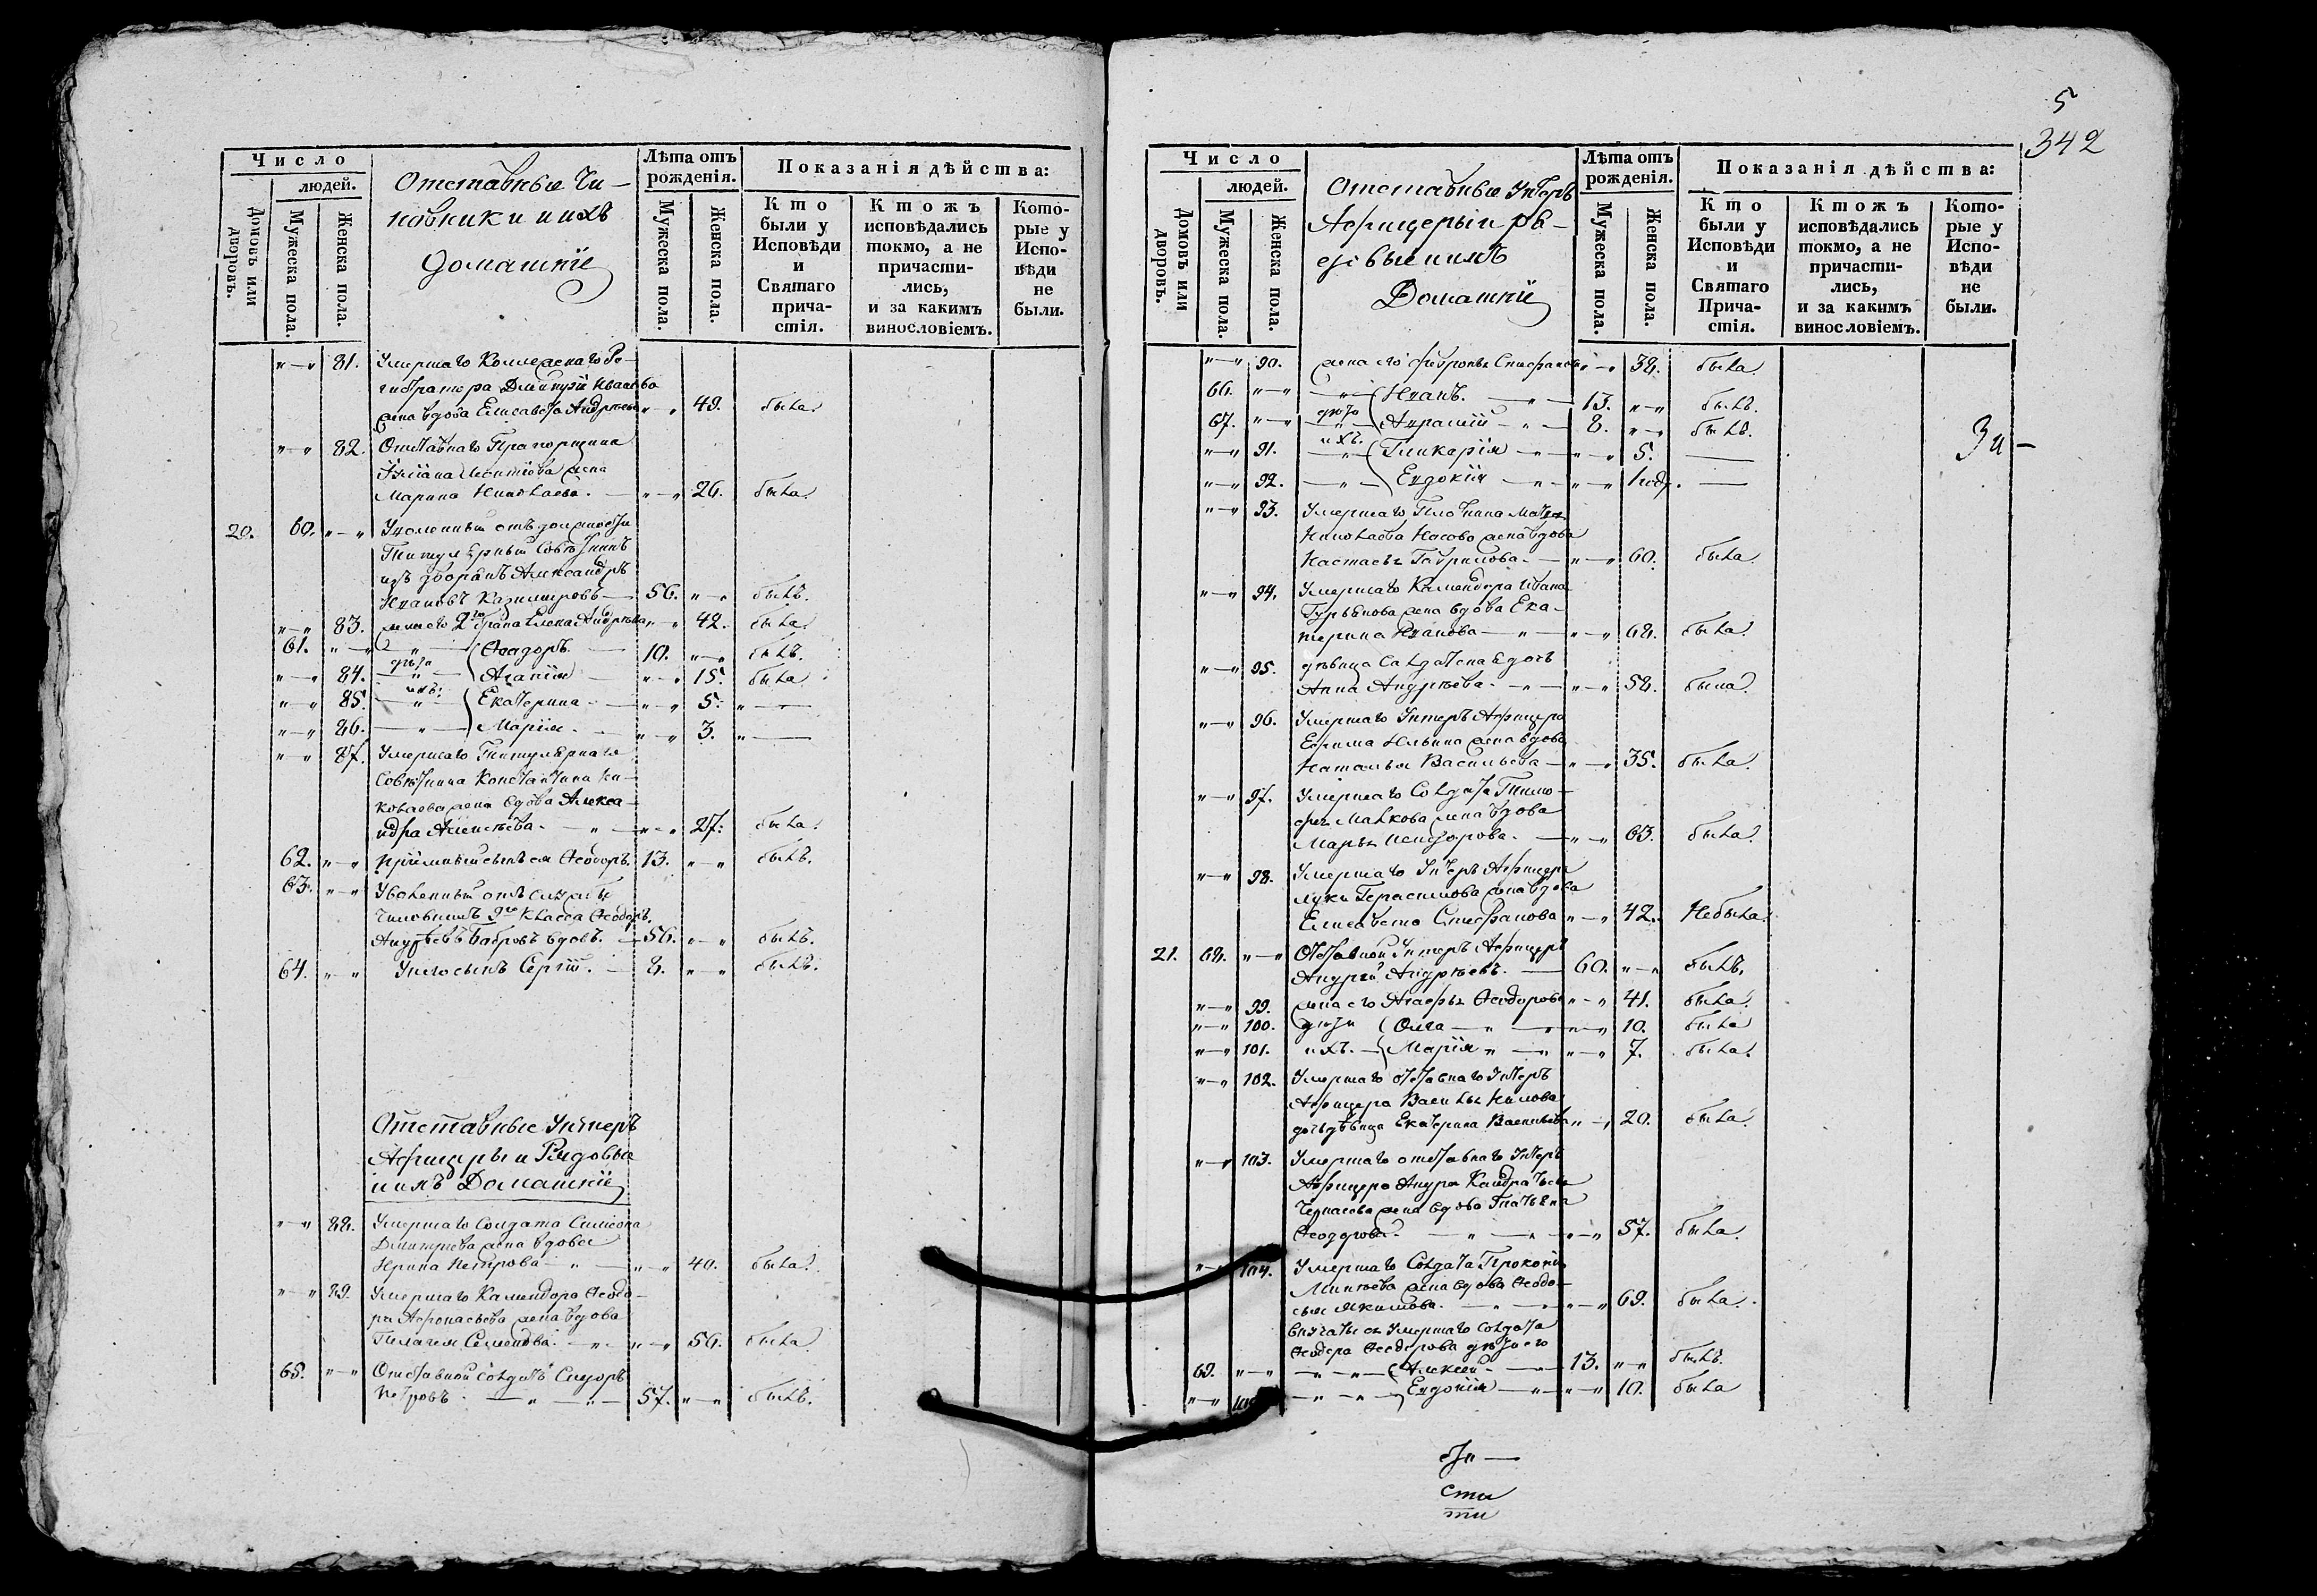 Число
людей.
Домовъ или дворовъ.
Мужеска пола.
Женска пола.
Отставные Чи-
новники и ихъ
домашніе
Лѣта отъ рожденія.
Мужеска пола.
Женска пола.
Показанія дѣйства:
Кто были у Исповѣди и Святаго причастія.
Ктожъ исповѣдались токмо, а не причастились, и за какимъ винословіемъ.
Которые у Исповѣди не были.
"—" 81. Умершаго Коллежскаго Ре-
гистратора Дмитрія Иванова
жена вдова Елисавета Андреева "—" 49. была.
"—" 82. Отставнаго Прапорщика
жена
Марина Николаева. — "—" 26. была.
20. 60. "—" Уволенный отъ должности
Титулярный Совѣтникъ
изъ дворянъ Александръ
Ивановъ Казимировъ — 56. "—" былъ.
"—" 83. жена его 2го брака Елена Андреева "—" 42. была.
61. "—" Ѳеодоръ. — 10. "—" былъ.
"—" 84. дѣти Агапія — "—" 15. была
"—" 85. ихъ: Екатерина — "—" 5. "—
"—" 86. Марія — "—" 3. "—
"—" 87. Умершаго Титулярнаго
Совѣтника Константина Ни-
колаева жена вдова Алекса-
ндра Алексѣева — "—" 27. была.
62. "—" пріемный сынъ ея Ѳеодоръ. 13. "—" былъ.
63. "—" Уволенный отъ службы
Чиновникъ 9го класса Ѳеодоръ
Андреевъ Бобровъ вдовъ. — 56. "—" былъ.
64. "—" У него сынъ Сергій. — 8. "—" былъ.
Отставные Унтеръ
Афицеры и Рядовые
и ихъ Домашніе
"—" 88. Умершаго Солдата Симеона
Дмитрева жена вдова
Ирина Петрова — "—" 40. была.
"—" 89. Умершаго Камандора Ѳеодо-
ра Афонасьева жена вдова
Пелагея Семенова. — "—" 56. была
65. "—" Отставной солдатъ Сидоръ
Петровъ. — 57. "—" былъ.
5
342
Число
людей.
Домовъ или дворовъ.
Мужеска пола.
Женска пола.
Отставные Унтеръ
Афицеры и ря-
довые и ихъ
Домашніе
Лѣта отъ рожденія.
Мужеска пола.
Женска пола.
Показанія дѣйства:
Кто были у Исповѣди и Святаго Причастія.
Ктожъ исповѣдались токмо, а не причастились, и за какимъ винословіемъ.
Которые у Исповѣди не были.
"—" 90. жена его Февронья Стефанова "—" 38. была.
66. "—" Иванъ. — 13. "—" былъ.
67. "—" дѣти — 8. "—" былъ.
"—" 91. ихъ. Гликерія — "—" 5. —
"—" 92. Евдокія — "—" 1 год. —
"—" 93. Умершаго
Николаева Носова жена вдова
Настасья Гаврилова. — "—" 60. была
"—" 94. Умершаго Камандора Ивана
Гурьянова жена вдова Ека-
терина Иванова — "—" 68. была.
"—" 95. дѣвица Солдатская дочь
Анна Андреева. — "—" 58. была.
"—" 96. Умершаго Унтеръ Афицера
Ефима Ильина жена вдова
Наталья Васильева — "—" 35. была.
"—" 97. Умершаго Солдата Тимо-
фея Малкова жена вдова
Марья — "—" 63. была.
"—" 98. Умершаго Унтеръ Афицера
Луки Герасимова жена вдова
Елисавета Стефанова "—" 42. Небыла.
21. 68. "—" Отставной Унтеръ Афицеръ
Андрей Андреевъ. — 60. "—" былъ.
"—" 99. жена его Агафья Ѳеодорова "—" 41. была.
"—" 100. дѣти Ольга — "—" 10. была
"—" 101. ихъ. Марія — "—" 7. была.
"—" 102. Умершаго отставнаго Унтеръ
Афицера Василья
дочь дѣвица Екатерина Васильева "—" 20. была.
"—" 103. Умершаго отставнаго Унтеръ
Афицера Андрея Кандратьева
жена вдова Татьяна
Ѳеодорова. — "—" 57. была.
"—" 104. Умершаго Солдата Прокопія
жена вдова Ѳеодо-
сья Якимова. — "—" 69. была.
умершаго солдата
Ѳеодора Ѳеодорова дѣти его
69. "—" Алексей — 13. "—" былъ.
"—" Евдокія — "—" 10. была
сти